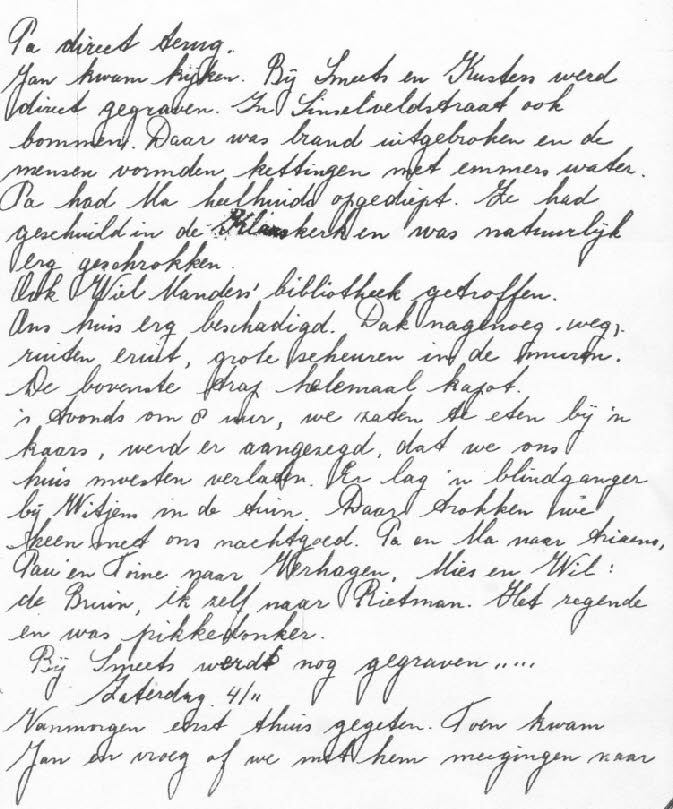 Pa direct terug.
Jan kwam kijken. Bij Smeets en Kusters werd
direct gegraven. In Sinselveldstraat ook
bommen. Daar was brand uitgebroken en de
mensen vormden kettingen met emmers water.
Pa had Ma heelhuids opgediept. Ze had
geschuild in de kerk en was natuurlijk
erg geschrokken.
Ook Wiel Manders' bibliotheek getroffen.
Ons huis erg beschadigd. Dak nagenoeg weg,
ruiten eruit, grote scheuren in de muren.
De bovenste trap helemaal kapot.
's Avonds om 8 uur, we zaten te eten bij 'n
kaars, werd er aangezegd, dat we ons
huis moesten verlaten. Er lag 'n blindganger
bij Witjens in de tuin. Daar trokken we
heen met ons nachtgoed. Pa en Ma naar Ariaens,
Pau en Toine naar Verhagen, Mies en Wil:
de Bruin, ik zelf naar Rietman. Het regende
en was pikkedonker.
Bij Smeets werdt nog gegraven .....
Zaterdag 4/11
Vanmorgen eerst thuis gegeten. Toen kwam
Jan en vroeg of we met hem meegingen naar